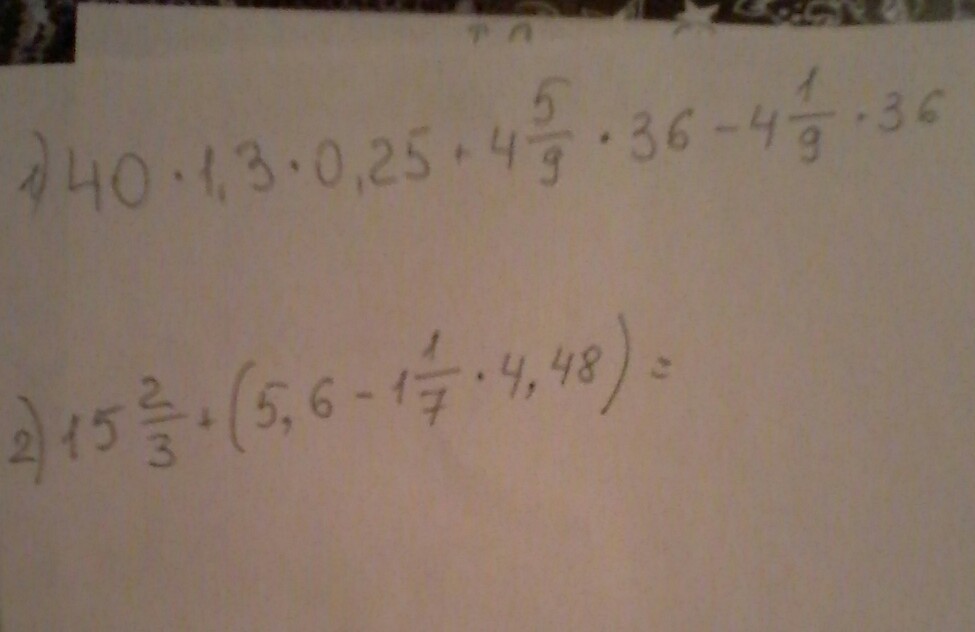 1) 40 · 1,3 · 0,25 + 4 5/9 · 36 - 4 1/9 · 36
2) 15 2/3 + (5,6 - 1 1/7 · 4,48) =